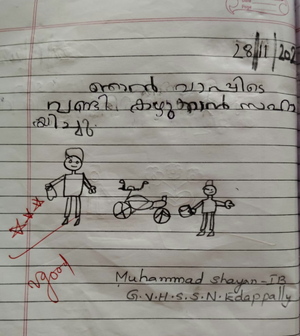 28/11/202
ഞാൻ വാപ്പിടെ
വണ്ടി കഴുകാൻ സഹാ
യിച്ചു.
v good
Muhammad Shayan - IB
G.V.H.S.S.N. Kdappally